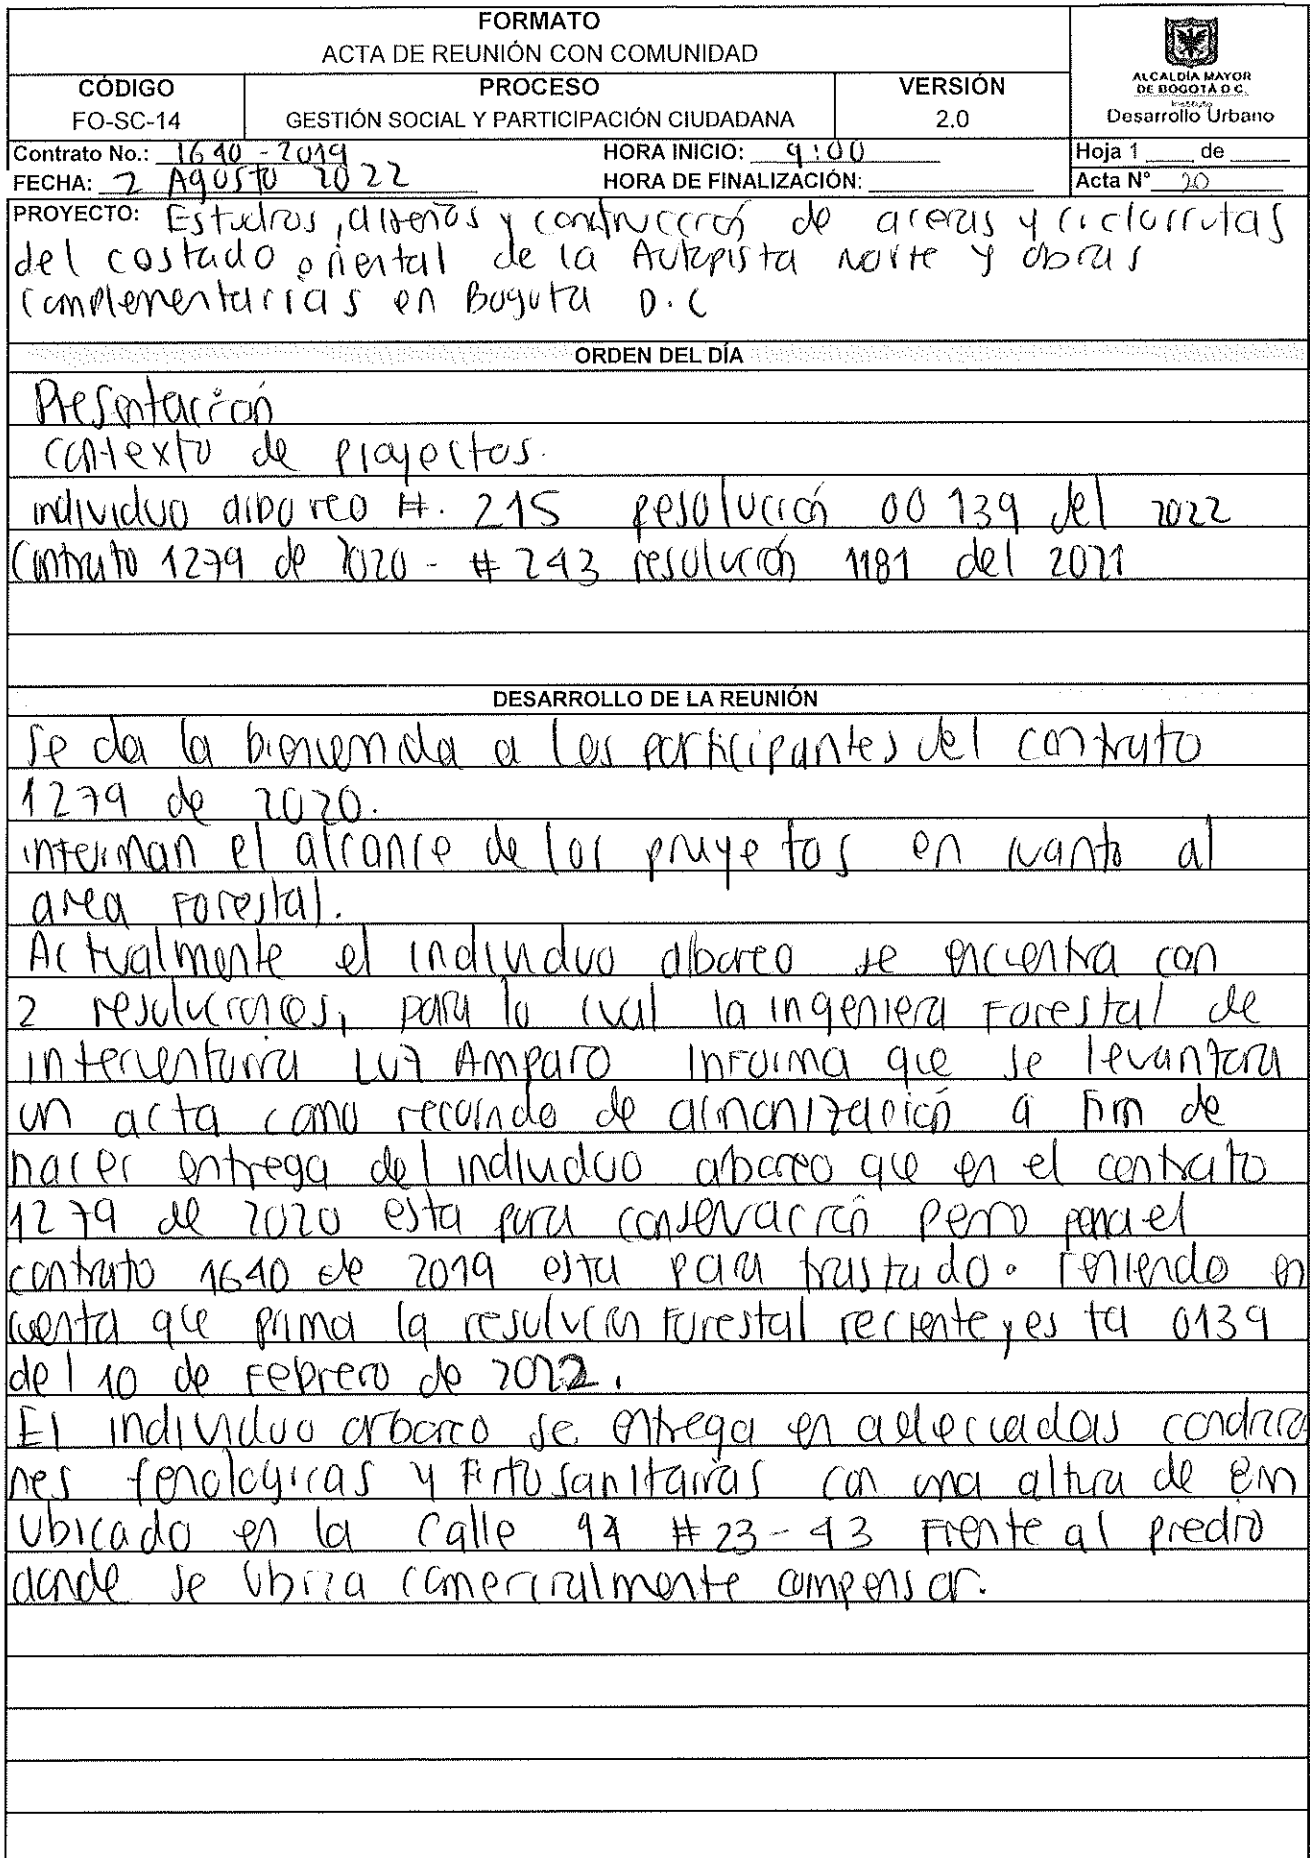 FORMATO
ACTA DE REUNIÓN CON COMUNIDAD
CÓDIGO
FO-SC-14
PROCESO
GESTIÓN SOCIAL Y PARTICIPACIÓN CIUDADANA
VERSIÓN
2.0
ALCALDÍA MAYOR
DE BOGOTÁ D.C.
Instituto
Desarrollo Urbano
Contrato No.: 1640 - 2019
HORA INICIO: 9:00
Hoja 1 ____ de ____
FECHA: 2 Agosto 2022
HORA DE FINALIZACIÓN:
Acta N° 20
PROYECTO: Estudios, diseños y construcción de aceras y ciclorrutas
del costado oriental de la Autopista Norte y obras
complementarias en Bogota D.C
ORDEN DEL DÍA
Presentación
contexto de proyectos.
individuo arboreo #. 215 resolución 00139 del 2022
Contrato 1279 de 2020 - # 243 resolución 1181 del 2021
DESARROLLO DE LA REUNIÓN
Se da la bienvenida a los participantes del contrato
1279 de 2020.
informan el alcance de los proyetos en cuanto al
area Forestal.
Actualmente el individuo arboreo se encuentra con
2 resoluciones, para lo cual la ingeniera Forestal de
interventoria Luz Amparo informa que se levantara
un acta como recorrido de armonización a fin de
hacer entrega del individuo arboreo que en el contrato
1279 de 2020 esta para conservación pero para el
contrato 1640 de 2019 esta para traslado. Teniendo en
cuenta que prima la resolución Forestal reciente y es la 0139
del 10 de Febrero de 2022.
El individuo arboreo se entrega en adecuadas condicio
nes fenologicas y Fitosanitarias con una altura de 8m
Ubicado en la Calle 94 # 23-43 Frente al predio
donde se ubica comercialmente compensar.